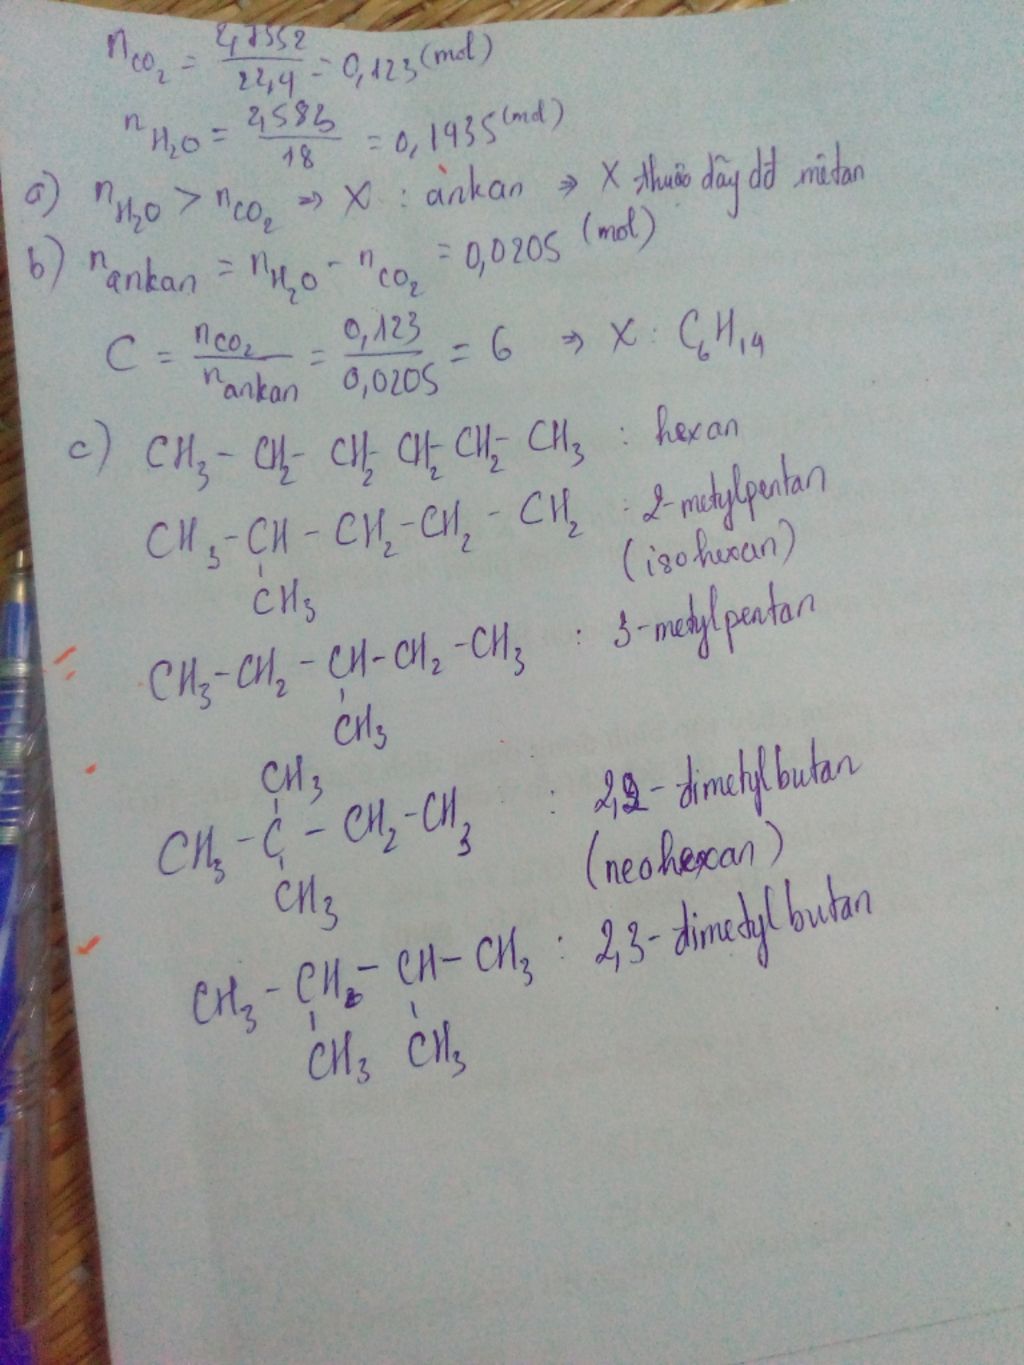 n CO₂ = 2,7552/22,4 = 0,123 (mol)
n H₂O = 2,583/18 = 0,1435 (mol)
a) n H₂O > n CO₂ => X : ankan => X thuộc dãy đđ mêtan
b) n ankan = n H₂O - n CO₂ = 0,0205 (mol)
C = n CO₂/n ankan = 0,123/0,0205 = 6 => X : C₆H₁₄
c) CH₃ - CH₂ - CH₂ - CH₂ - CH₂ - CH₃ : hexan
CH₃ - CH - CH₂ - CH₂ - CH₂ : 2-metylpentan
CH₃ (isohexan)
CH₃ - CH₂ - CH - CH₂ - CH₃ : 3-metylpentan
CH₃
CH₃
CH₃ - C - CH₂ - CH₃ : 2,2-đimetylbutan
CH₃ (neohexan)
CH₃ - CH₂ - CH - CH₃ : 2,3-đimetylbutan
CH₃ CH₃